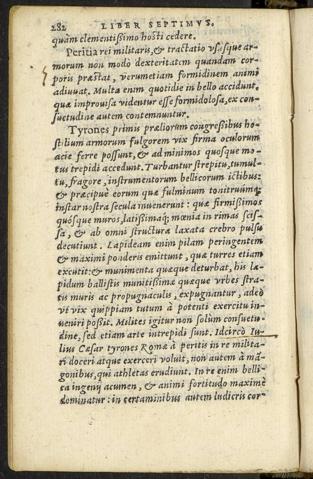 282 LIBER SEPTIMVS.
quàm clementißimo hosti cedere.
Peritia rei militaris, & tractatio vsúsque ar-
morum non modò dexteritatem quandam cor-
poris præstat, verumetiam formidinem animi
adiuuat. Multa enim quotidie in bello accidunt,
quæ improuisa videntur esse formidolosa, ex con-
suetudine autem contemnuntur.
Tyrones primis præliorum congreßibus ho-
stilium armorum fulgorem vix firma oculorum
acie ferre possunt, & ad minimos quosque mo-
tus trepidi accedunt. Turbantur strepitu, tumul-
tu, fragore, instrumentorum bellicorum ictibus:
& præcipuè eorum quæ fulminum tonitruúmq;
instar nostra secula inuenerunt: quæ firmißimos
quósque muros, latißimáq; mœnia in rimas scis-
sa, & ab omni structura laxata crebro pulsu
decutiunt. Lapideam enim pilam peringentem
& maximi ponderis emittunt, quæ turres etiam
excutit: & munimenta quæque deturbat, his la-
pidum ballistis munitißimæ quæque vrbes stra-
tis muris ac propugnaculis, expugnantur, adeò
vt vix quippiam tutum à potenti exercitu in-
ueniri poßit. Milites igitur non solùm consuetu-
dine, sed etiam arte intrepidi sunt. Idcircò Iu-
lius Cæsar tyrones Romæ à peritis in re milita-
ri doceri atque exerceri voluit, non autem à ma-
gonibus, qui athletas erudiunt. In re enim belli-
ca ingenij acumen, & animi fortitudo maximè
dominatur: in certaminibus autem ludicris cor-